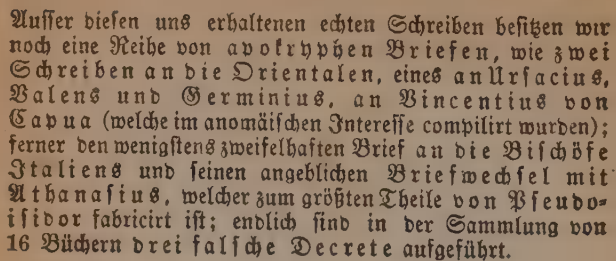 Ausser diesen uns erhaltenen echten Schreiben besitzen wir
noch eine Reihe von apokryphen Briefen, wie zwei
Schreiben an die Orientalen, eines an Ursacius,
Valens und Germinius, an Vincentius von
Capua (welche im anomäischen Interesse compilirt wurden);
ferner den wenigstens zweifelhaften Brief an die Bischöfe
Italiens und seinen angeblichen Briefwechsel mit
Athanasius, welcher zum größten Theile von Pseudo=
isidor fabricirt ist; endlich sind in der Sammlung von
16 Büchern drei falsche Decrete aufgeführt.